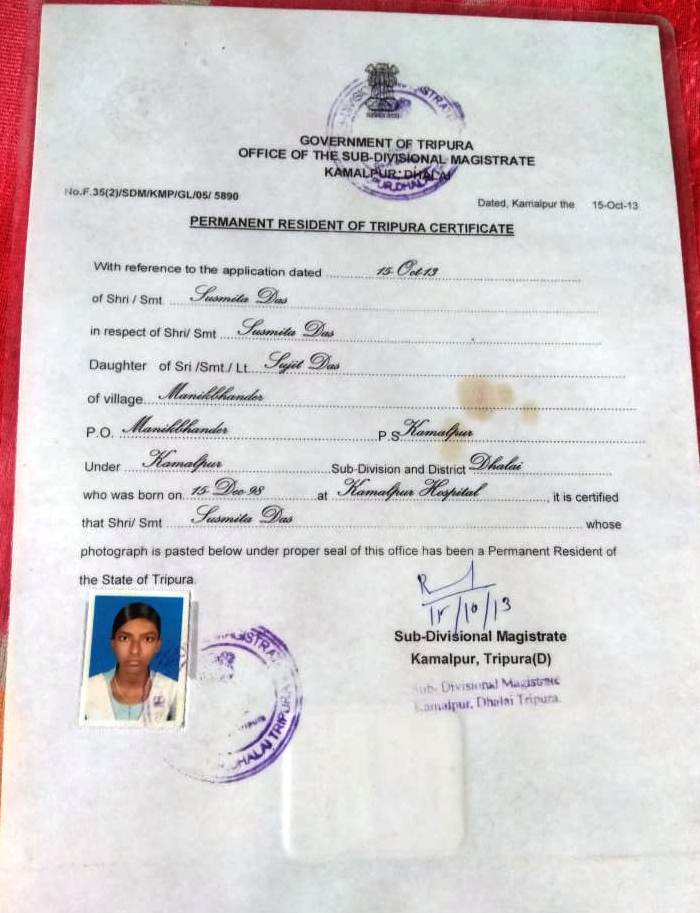 GOVERNMENT OF TRIPURA
OFFICE OF THE SUB-DIVISIONAL MAGISTRATE
KAMALPUR: DHALAI
No.F.35(2)/SDM/KMP/GL/05/ 5890
Dated, Kamalpur the 15-Oct-13
PERMANENT RESIDENT OF TRIPURA CERTIFICATE
With reference to the application dated 15-Oct-13
of Shri / Smt Susmita Das
in respect of Shri/ Smt Susmita Das
Daughter of Sri /Smt./ Lt. Sujit Das
of village Manikbhander
P.O. Manikbhander P.S Kamalpur
Under Kamalpur Sub-Division and District Dhalai
who was born on 15-Dec-98 at Kamalpur Hospital, it is certified
that Shri/ Smt Susmita Das whose
photograph is pasted below under proper seal of this office has been a Permanent Resident of
the State of Tripura.
15/10/13
Sub-Divisional Magistrate
Kamalpur, Tripura(D)
Sub- Divisional Magistrate
Kamalpur, Dhalai Tripura.
DHALAI TRIPURA